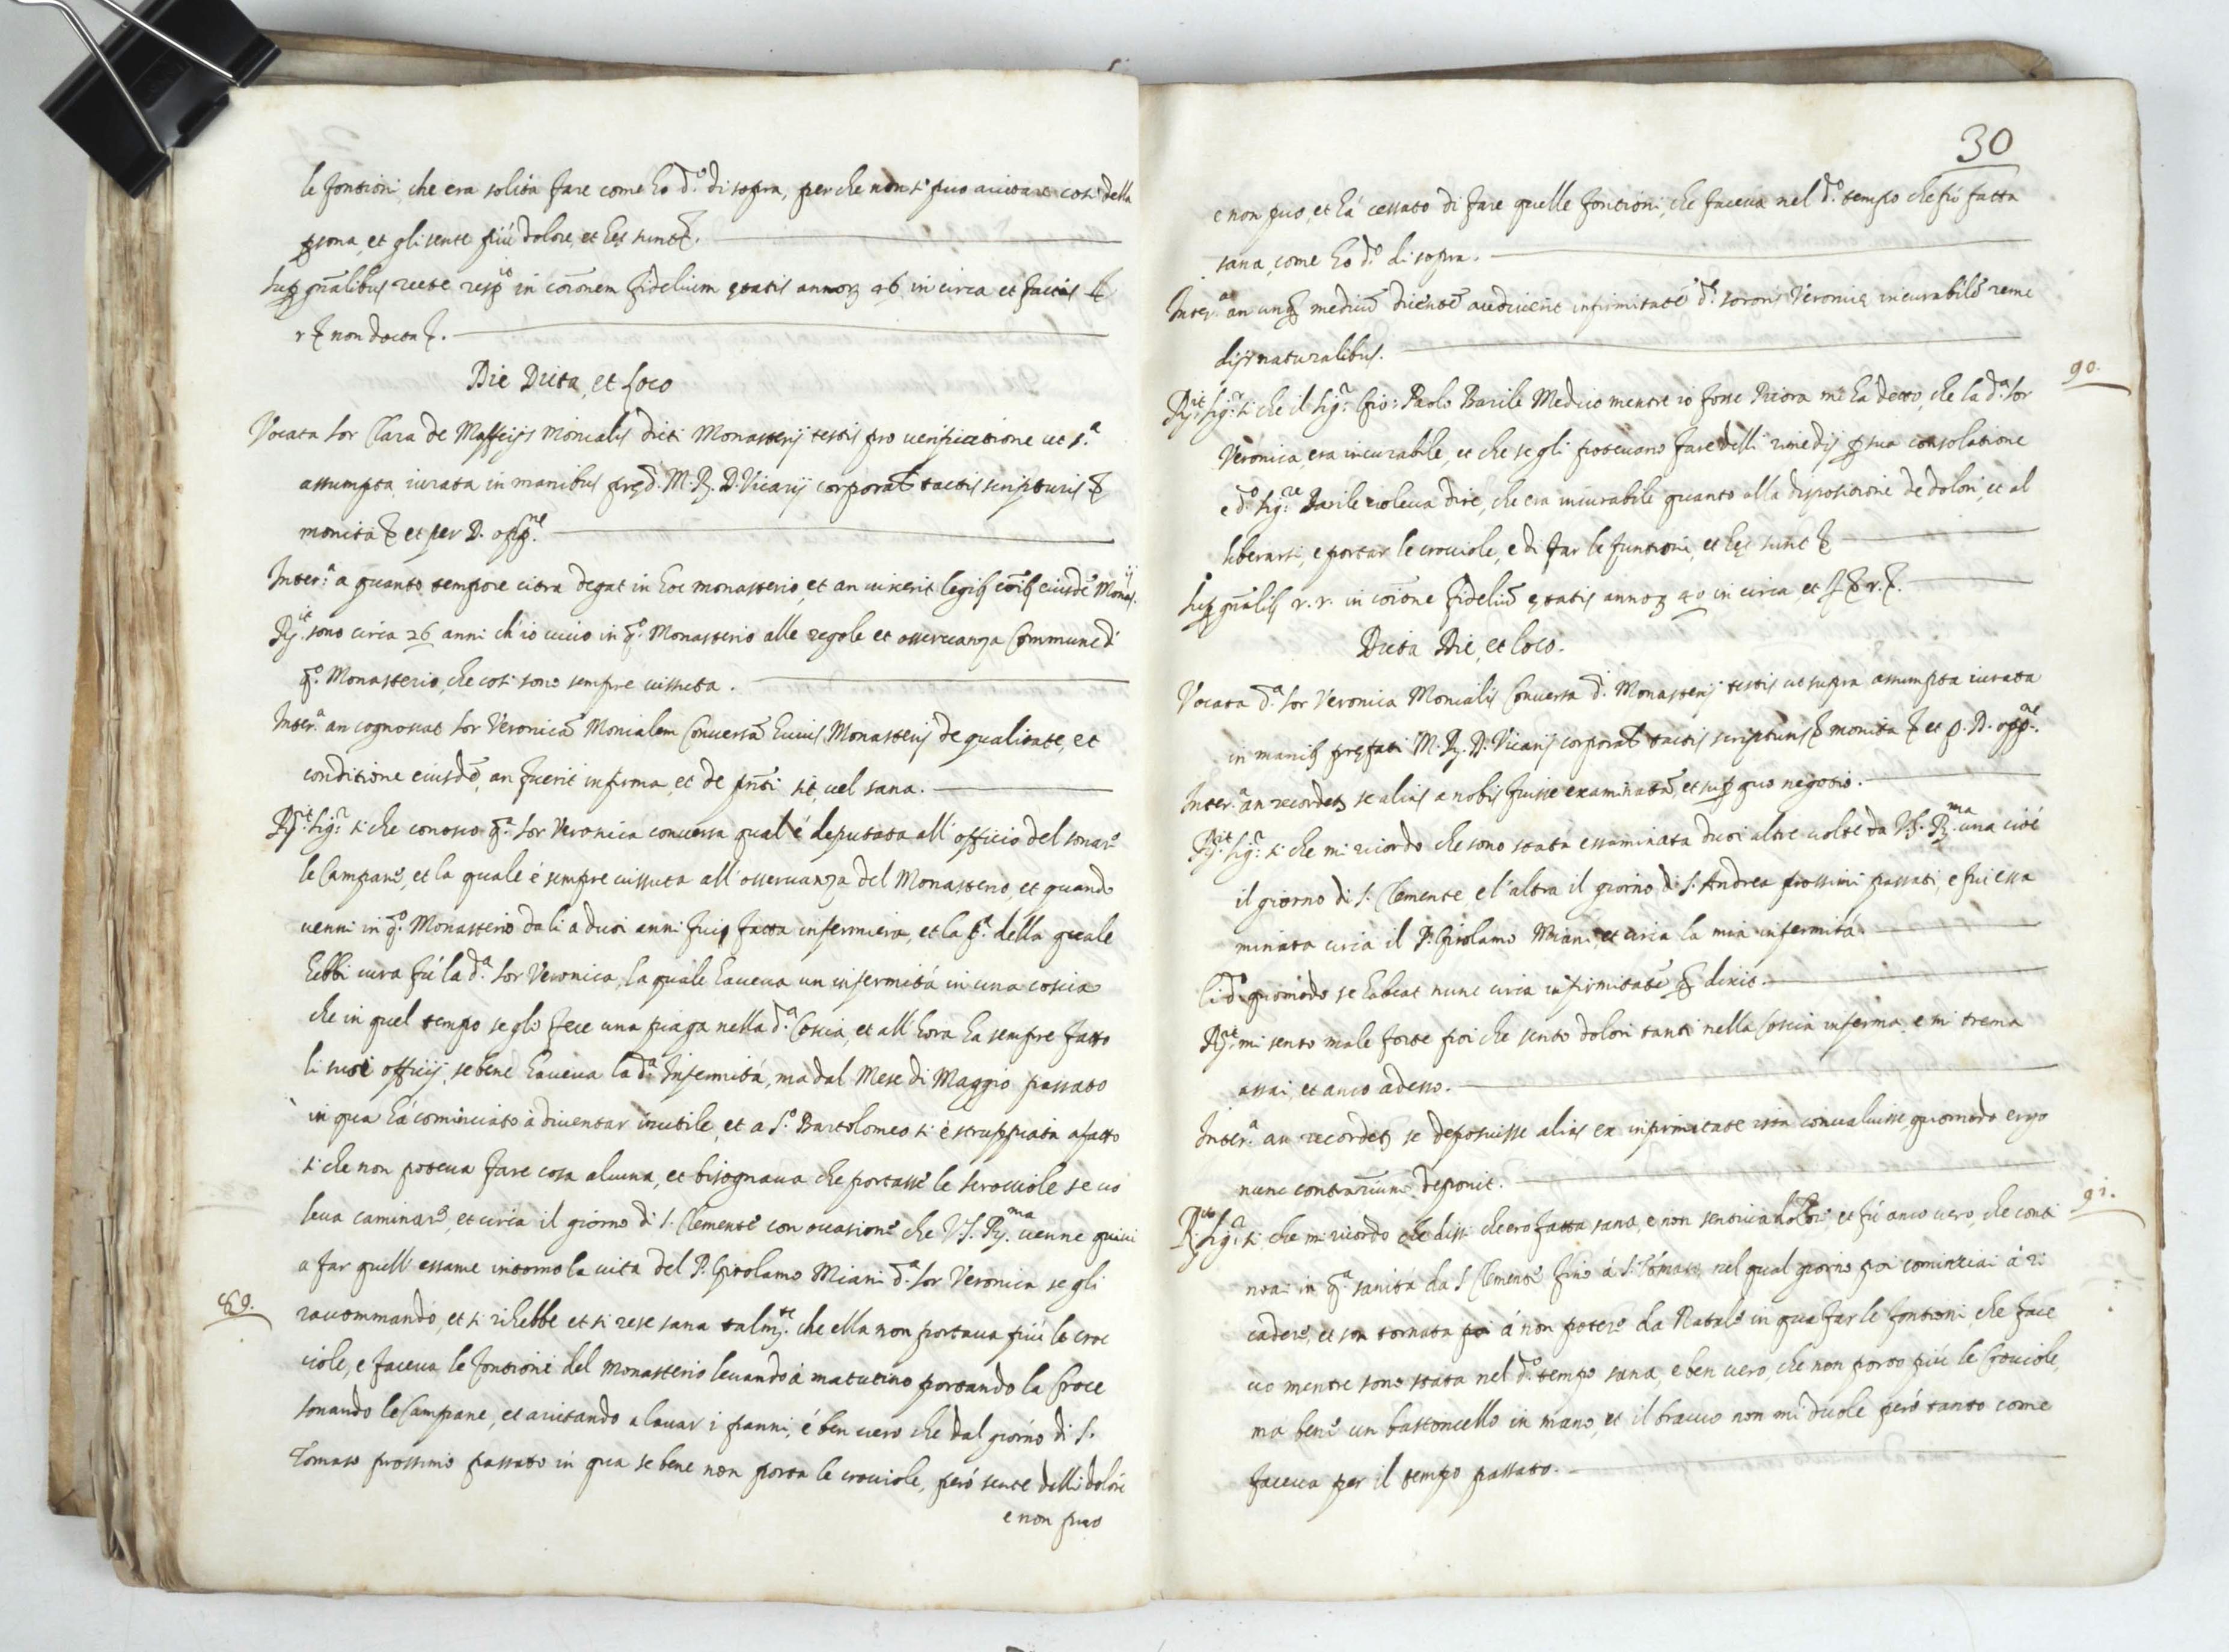 le fontioni, che era solita fare come ho d.º di sopra, perche non si puo aiutare cosi della
psona, et gli sente più dolore, et hęc sunt &.
Sup gñalibus recte resp.it in coionem fidelium ętatis annor 46 in circa et facias &
r & non docta &.
Die Dicta, et Loco
Vocata Sor Clara de Maffeijs Monialis dicti Monasterij testis pro uerificatione ut s.ª
assumpta iurata in manibus pręd. M. R. D. Vicarij corporat tactis scripturis &
monita & et per D. opp.ne
Inter.ª a quanto tempore citra degat in hoc monasterio, et an uixerit legib coib eiusdē Monas.ij
Rx.it sono circa 26 anni ch'io uiuo in q.º Monasterio alle regole et osseruanza Commune di
q.º Monasterio, che cosi sono sempre uissuta.
Inter.ª an cognoscat Sor Veronicā Monialem Conuersā huius Monasterij de qualitate, et
conditione eiusdē, an fuerit infirma, et de pñti sit, uel sana.
Rx.it Sig.r si che conosco q.ª Sor Veronica conuersa qual' é deputata all' officio del sonare
le Campane, et la quale é sempre uissuta all' osseruanza del Monasterio, et quando
uenni in q.º Monasterio da li a duoi anni fui fatta infermiera, et la p.ª della quale
hebbi cura fú la d.ª Sor Veronica, la quale haueua un infermitá in una coscia
che in quel tempo se gli fece una piaga nella d.ª Coscia, et all' hora ha sempre fatto
li suoi officij, se bene haueua la d.ª Infermitá, ma dal Mese di Maggio passato
in qua há cominciato à diuentar inutile, et a S.º Bartolomeo si é struppiata afatto
si che non poteua fare cosa alcuna, et bisognaua che portasse le scrociole se uo
leua caminare, et circa il giorno di S. Clemente con occasione che V.S. R.ma uenne quiui
a far quell' essame intorno la uita del P. Girolamo Miani d.ª Sor Veronica se gli
89.
raccommandó, et si rihebbe et si rese sana talm.te che ella non portaua più le croc
ciole, e faceua le fontioni del Monasterio leuando à matutino portando la Croce
sonando le Campane, et aiutando a lauar i panni, é ben uero che dal giorno di S.
Tomaso prossimo passato in qua se bene non porta le crociole, peró sente delli dolori
e non puo
30
e non puo, et há cessato di fare quelle fontioni, che faceua nel d.º tempo che fú fatta
sana, come ho d.º di sopra.
Inter.ª an unq medicū dicente audiuerit infirmitatē d.ę sororis Veronicę incurabilē reme
dijs naturalibus.
90.
Rx.it Sig.r si che il Sig.r Gio: Paolo Barile Medico mentre io fosse Priora mi há detto, che la d.ª Sor
Veronica, era incurabile, et che se gli poteuano fare delli rimedij p sua consolatione
e d.º Sig.re Barile uoleua dire, che era incurabile quanto alla dispositione de dolori, et al
liberarsi, e portar le crociole, e di far le funtioni, et hęc sunt &
Sup gñalib r. r. in coione fideliū ętatis annor 40 in circa, et f & r. &.
Dicta Die, et loco.
Vocata d.ª Sor Veronica Monialis Conuersa d. Monasterij testis ut supra assumpta iurata
in manib pręfati M. R. D. Vicarij corporat tactis scripturis & monita & et p. D. opp.ne
Inter.ª an recordet se alias a nobis fuisse examinatā, et sup quo negotio.
Rx.it Sig.r si che mi ricordo che sono stata essaminata duoi altre uolte da V.S. R.ma una cioé
il giorno di S. Clemente, e l'altra il giorno di S. Andrea prossimi passati, e fui essa
minata circa il P. Girolamo Miani, et circa la mia infermitá.
Ei d. quomodo se habeat nunc circa infirmitatē q dixit.
Rx.it mi sento male forte poi che sento dolori tanti nella coscia inferma, e mi trema
assai, et anco adesso.
Inter.ª an recordet se deposuisse alias ex infirmitate ista conualuisse, quomodo ergo
nunc contrarium deponit.
91.
Rx.it Sig.r si che mi ricordo che dissi che ero fatta sana, e non sentiua dolori, et fú anco uero, che conti
nuai in q.ª sanitá da S. Clemente fino á S. Tomaso, nel qual giorno poi cominciai á ri
cadere, et son tornata poi á non potere da Natale in qua far le fontioni, che face
uo mentre sono stata nel d.º tempo sana, e ben uero, che non porto più le Crociole,
ma bene un bastoncello in mano, et il braccio non mi duole peró tanto come
faceua per il tempo passato.